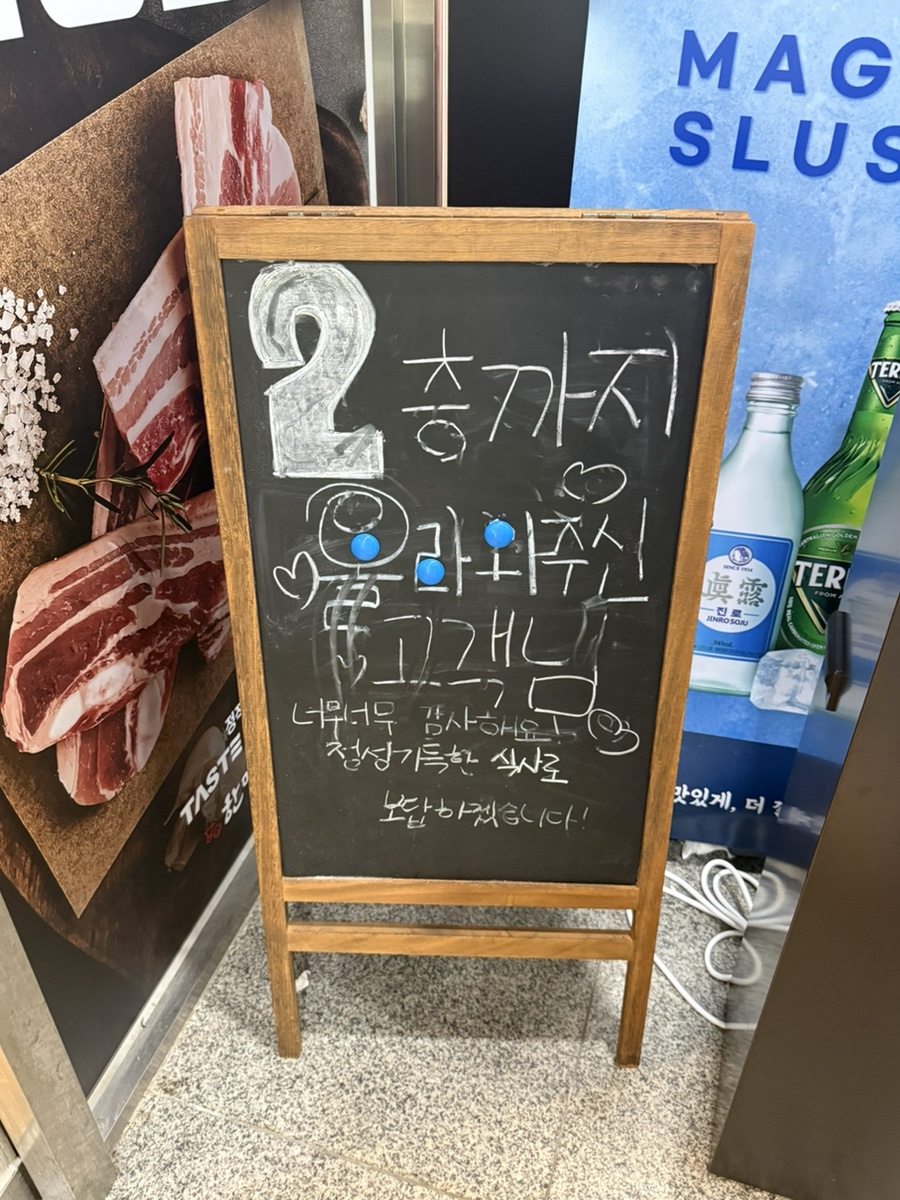 MAG
SLUS
2층까지
올라와주신
고객님
너무너무 감사해요!
정성가득한 식사로
보답하겠습니다!
SINCE 1924
眞露
진로
JINRO SOJU
TER
TER
TASTE
맛있게, 더